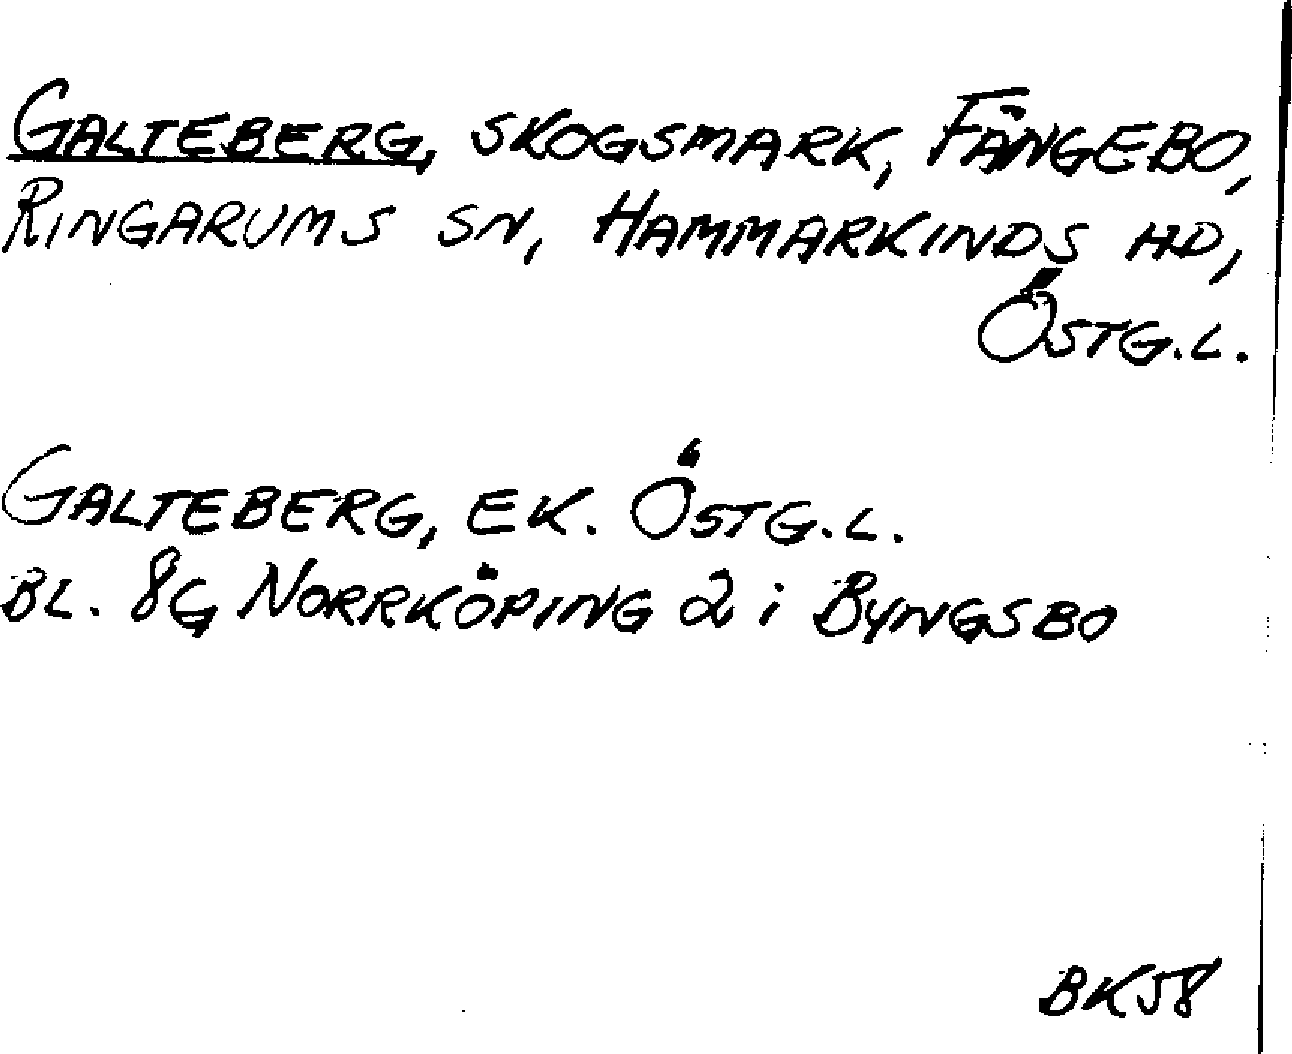 GALTEBERG, SKOGSMARK, FÅNGEBO,
RINGARUMS SN, HAMMARKINDS HD,
ÖSTG.L.
GALTEBERG, EK. ÖSTG.L.
BL. 8G NORRKÖPING 2 i BYNGSBO
BK58